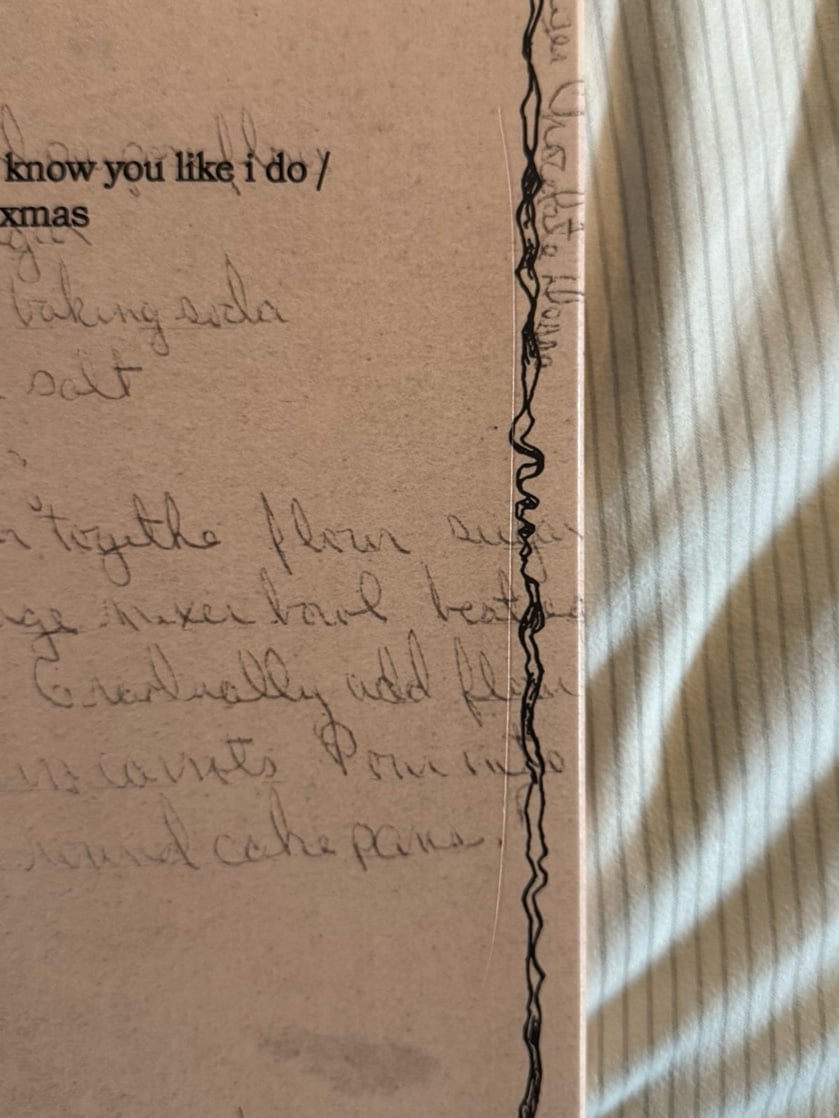 know you like i do /
xmas
baking soda
salt
togethe flour sugar
mixer bowl
Gradually add flour
carrots Pour into
round cake pans.